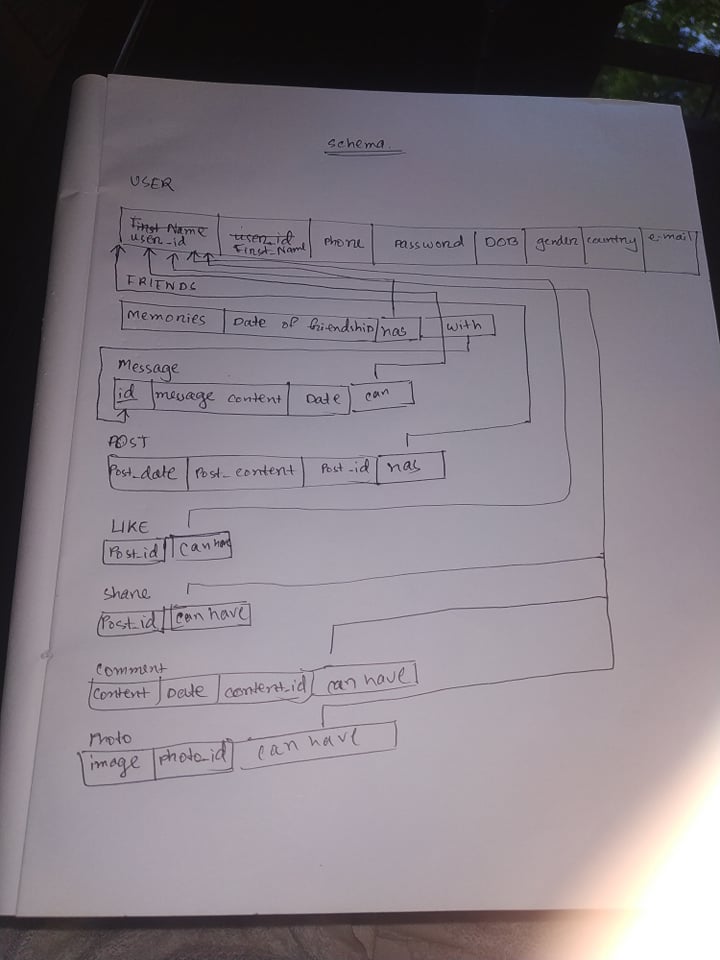 Schema
USER
First Name user_id phone password DOB gender country e-mail
user_id First_Name
FRIENDS
Memories Date of friendship has with
Message
id message content Date can
POST
Post_date Post_content Post_id has
LIKE
Post_id can have
Share
Post_id can have
Comment
Content Date content_id can have
Photo
image photo_id can have